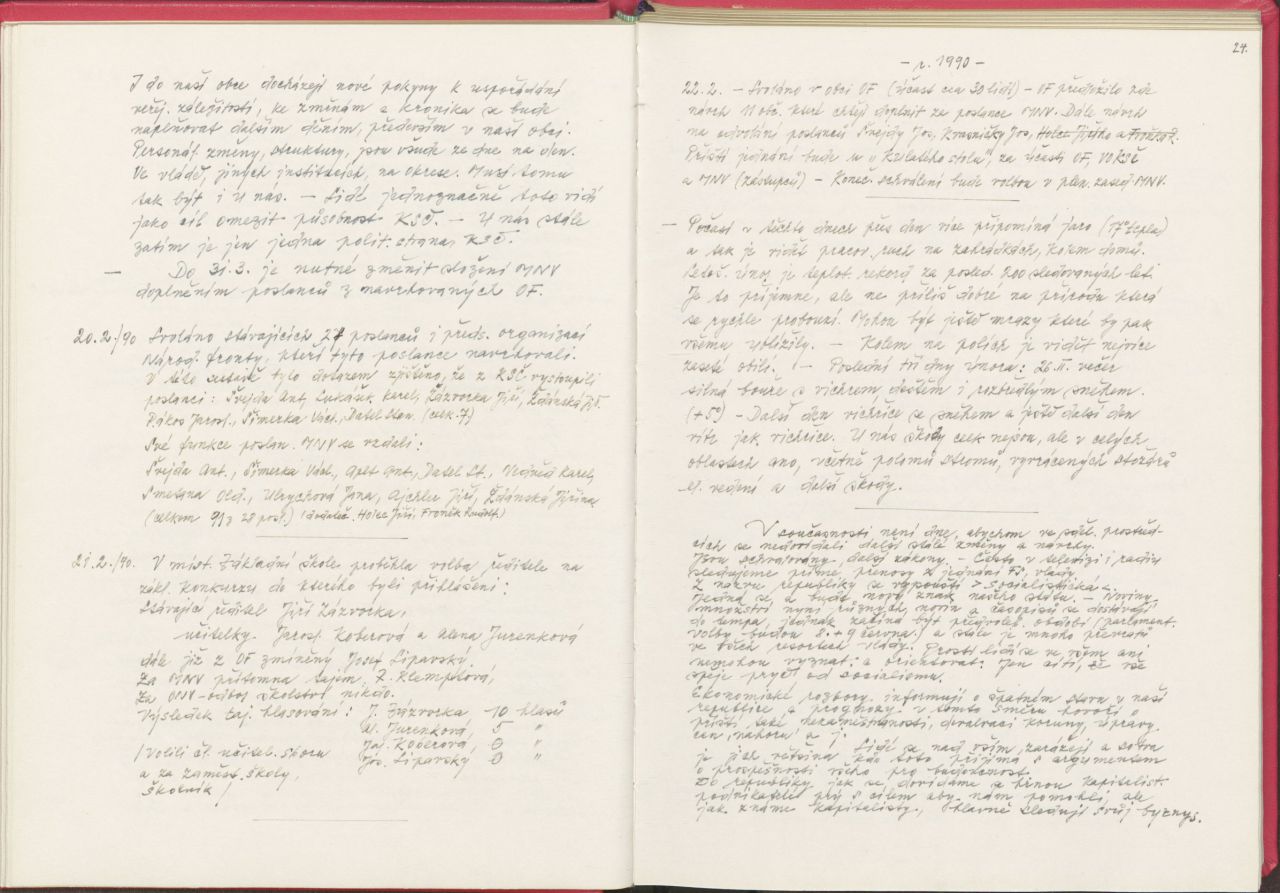 I do naší obce docházejí nové pokyny k uspořádání
veřej. záležitostí, ke změnám a kronika se bude
naplňovat dalším děním, především v naší obci.
Personál. změny, struktury, jsou všude ze dne na den.
Ve vládě, jiných institucích, na okrese. Musí tomu
tak být i u nás. — Lidé jednoznačně toto vidí
jako cíl omezit působnost KSČ. — U nás stále
zatím je jen jedna polit. strana KSČ.
— Do 31.3. je nutné změnit složení MNV
doplněním poslanců z navrhovaných OF.
20.2./90 Svoláno stávajících 27 poslanců i předs. organizací
Národ. fronty, kteří tyto poslance navrhovali.
V této sestavě bylo dotazem zjištěno, že z KSČ vystoupili
poslanci: Švejda Ant, Lukášek Karel, Zázvorka Jiří, Ždánská Jiř.
Rákos Jarosl., Šimerka Václ., Datel Stan. (celk. 7)
Své funkce poslan. MNV se vzdali:
Švejda Ant., Šimerka Václ., Apet Ant., Datel St., Karel,
Smetana Old., Ulrychová Jana, Ajchler Jiří, Ždánská Jiřina
(celkem 9 z 28 posl.) (dodateč. Holec Jiří, Froněk Rudolf.)
21.2./90. V míst. Základní škole proběhla volba ředitele na
zákl. konkurzu do kterého byli přihlášeni:
Stávající ředitel Jiří Zázvorka,
učitelky. Jarosl. Koberová a Alena Jurenková
dále již z OF zmíněný Josef Liparský.
Za MNV přítomna tajem. Z. Klemptová,
Za ONV-odbor školství nikdo.
Výsledek taj. hlasování: J. Zázvorka 10 hlasů
A. Jurenková, 5 "
/Volili čl. učitel. sboru Jar. Koberová, 0 "
a za zaměst. školy, Jos. Liparský 0 "
školník/
24.
— r. 1990 —
22.2. — Svoláno v obci OF (účast cca 30 lidí) — OF předložilo zde
návrh 11 obč. které chtějí doplnit za poslance MNV. Dále návrh
na odvolání poslanců Švejdy Jos, Kvasničky Jos, Holce Jiřího a
Příští jednání bude u "kulatého stolu", za účasti OF, VO KSČ
a MNV (zástupců) — Koneč. schválení bude volbou v plen. zased. MNV.
— Počasí v těchto dnech přes den více připomíná jaro (17° tepla)
a tak je vidět pracov. ruch na zahrádkách, kolem domů.
Letoš. únor je teplot. rekord za posled. 200 sledovaných let.
Je to příjemné, ale ne příliš dobré na přírodu která
se rychle probouzí. Mohou být ještě mrazy které by pak
všemu ublížily. — Kolem na polích je vidět nejvíce
zaseté obilí. — Poslední tři dny února: 26.II. večer
silná bouře s vichrem, deštěm i rozbředlým sněhem.
(+5°) — Další den vichřice se sněhem a ještě další den
vítr jak vichřice. U nás škody celk. nejsou, ale v celých
oblastech ano, včetně polomů stromů, vyvrácených stožárů
el. vedení a další škody.
V současnosti není dne, abychom ve sděl. prostřed-
cích se nedovídali další stálé změny a návrhy.
Jsou schvalovány další zákony. — Často v televizi i radiu
sledujeme přímé přenosy z jednání FS, vlády.
Z názvu republiky se vypouští > socialistická <
Jedná se a bude nový znak našeho státu. — Noviny.
Množství nyní různých novin a časopisů se dostávají
do tempa, jednak začíná být předvoleb. období (parlament.
volby budou 8.+9 června.) a stále je mnoho převratů
ve všech resortech vlády. Prostí lidé se ve všem ani
nemohou vyznat a orientovat. Jen cítí, že vše
spěje pryč od socialismu.
Ekonomické rozbory informují o špatném stavu v naší
republice a prognózy v tomto směru hovoří o
příští také nezaměstnanosti, devalvaci koruny, úpravy
cen "nahoru" a j.
Lidé se nad vším zarážejí a sotva
je jich většina kdo toto přijímá s argumentem
o prospěšnosti všeho pro budoucnost.
Do republiky jak se dovídáme se hrnou kapitalist.
podnikatelé prý s cílem aby nám pomohli, ale
jak známe kapitalisty, hlavně sledují svůj byznys.